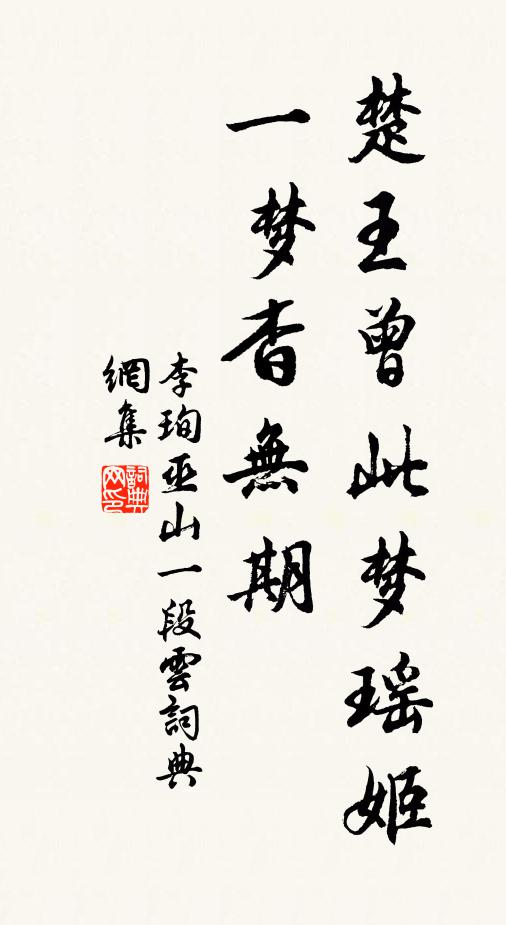 楚王曾此梦瑶姬
一梦杳無期
李珣巫山一段雲詞典
網集
詞典網印